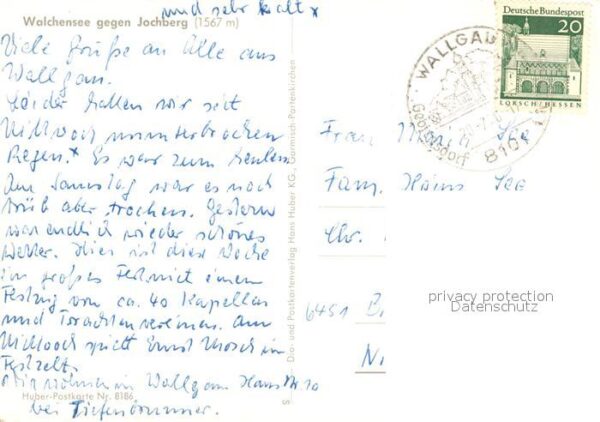 und sehr kalt x
Walchensee gegen Jochberg (1567 m)
Viele Grüße an Alle aus
Wallgau.
Leider hatten wir seit
Mittwoch ununterbrochen
Regen.x Es war zum Heulen.
Am Samstag war es noch
trüb aber trocken. Gestern
war endlich wieder schönes
Wetter. Hier ist diese Woche
ein großes Fest mit einem
Festzug von ca. 40 Kapellen
und Trachtenvereinen. Am
Mittwoch spielt Ernst Mosch im
Festzelt.
Wir wohnen in Wallgau Haus Nr 10
bei Tiefenbrunner.
Huber-Postkarte Nr. 8186
Dia- und Postkartenverlag Hans Huber KG., Garmisch-Partenkirchen
S
Deutsche Bundespost
20
LORSCH/HESSEN
WALLGAU
8101
Frau See
Fam. Hans See
Chr.
6451
privacy protection
Datenschutz